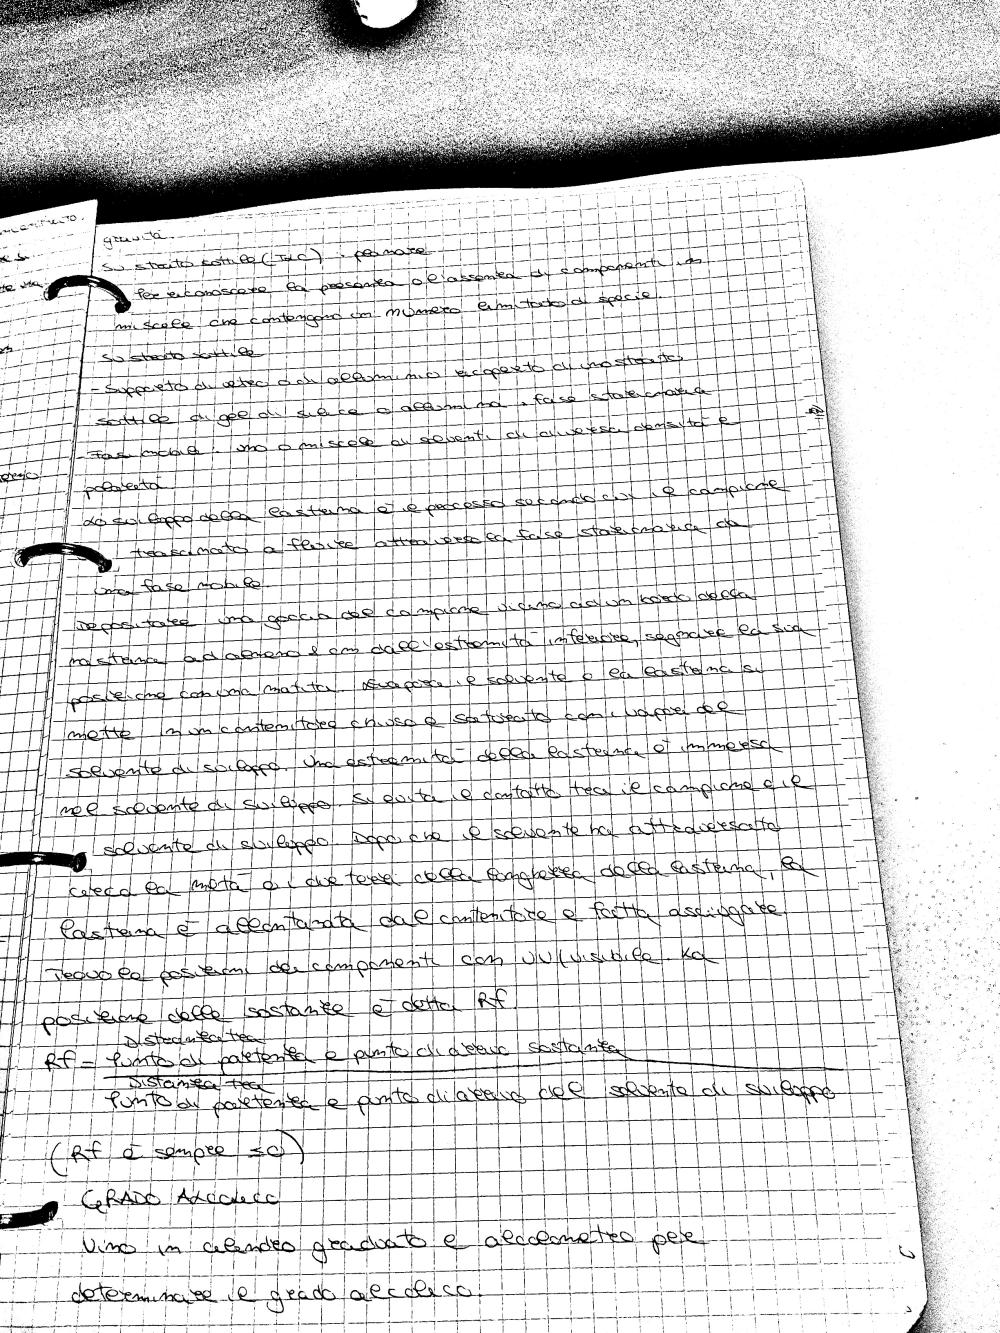 gravità.
Su strato sottile (TLC) : planare
Per riconoscere la presenza o l'assenza di componenti in
miscele che contengono un numero limitato di specie.
Su strato sottile
- Supporto di vetro o di alluminio ricoperto di uno strato
sottile di gel di silice o allumina. fase stazionaria
Fase mobile : uno o miscele di solventi di diversa densità e
polarità
Lo sviluppo della lastrina è il processo secondo cui il campione
trascinato a fluire attraverso la fase stazionaria da
una fase mobile.
Depositare una goccia del campione vicino ad un bordo della
lastrina ad almeno 2 cm dall'estremità inferiore, segnare la sua
posizione con una matita. Evapora il solvente e la lastrina si
mette in un contenitore chiuso e saturato con i vapori del
solvente di sviluppo. Una estremità della lastrina è immersa
nel solvente di sviluppo. Si evita il contatto tra il campione e il
solvente di sviluppo. Dopo che il solvente ha attraversato
circa la metà o i due terzi della lunghezza della lastrina, la
lastrina è allontanata dal contenitore e fatta asciugare.
Trovo le posizioni dei componenti con UV/visibile. La
posizione delle sostanze è detta Rf.
Distanza tra
Rf = Punto di partenza e punto di arrivo sostanza
Distanza tra
Punto di partenza e punto di arrivo del solvente di sviluppo
(Rf è sempre ≤0)
GRADO ALCOLICO
Vino in cilindro graduato e alcolometro per
determinare il grado alcolico.